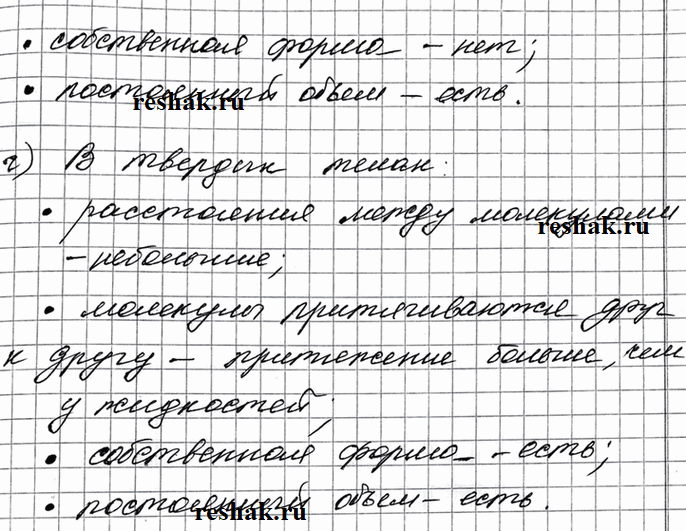 • собственная форма - нет;
• постоянный объем - есть.
reshak.ru
г) В твердых телах:
• расстояния между молекулами
reshak.ru
- небольшие;
• молекулы притягиваются друг
к другу - притяжение больше, чем
у жидкостей;
• собственная форма - есть;
• постоянный объем - есть.
reshak.ru